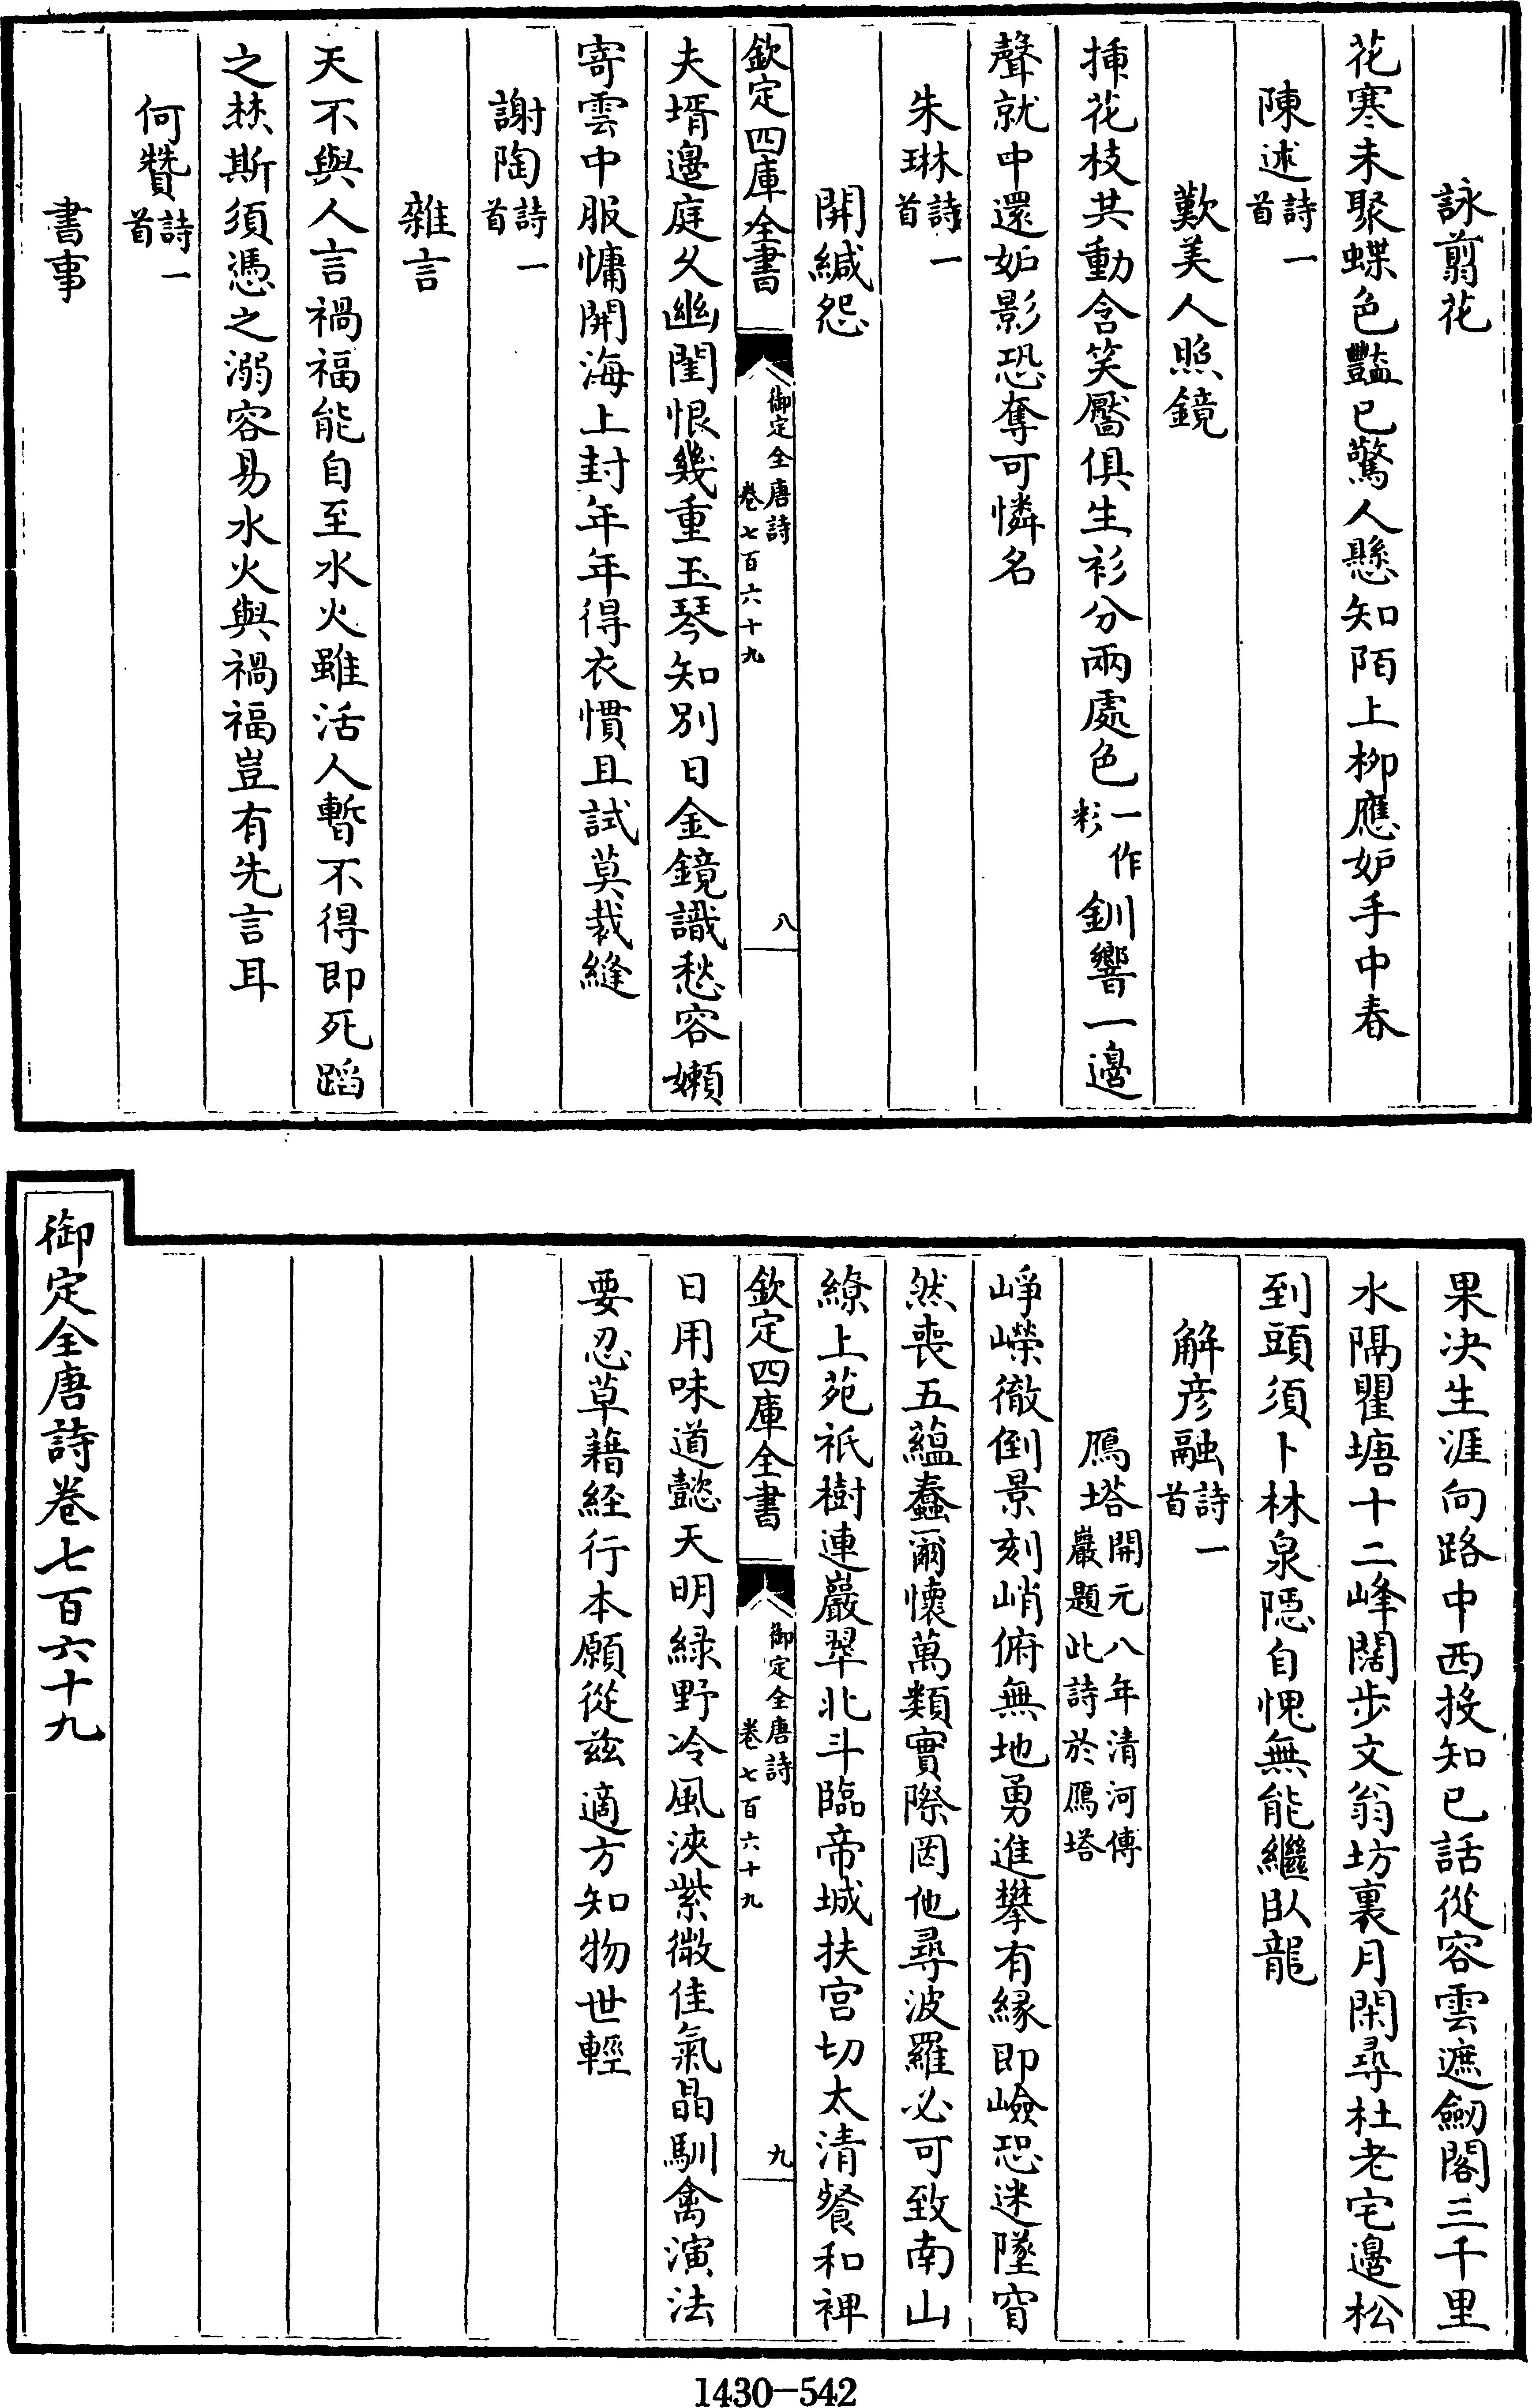 詠翦花
花寒未聚蝶色豔已驚人懸知陌上柳應妒手中春
陳述詩一首
歎美人照鏡
揷花枝共動含笑靨俱生衫分兩處色一作彩釧響一邊
聲就中還妬影恐奪可憐名
朱琳詩一首
開緘怨
欽定四庫全書
御定全唐詩
卷七百六十九
八
夫壻邊庭久幽閨恨幾重玉琴知別日金鏡識愁容嬾
寄雲中服慵開海上封年年得衣慣且試莫裁縫
謝陶詩一首
雜言
天不與人言禍福能自至水火雖活人暫不得即死蹈
之焚斯須憑之溺容易水火與禍福豈有先言耳
何贊詩一首
書事
果決生涯向路中西投知已話從容雲遮劒閣三千里
水隔瞿塘十二峰闊步文翁坊裏月閑尋杜老宅邊松
到頭須卜林泉隱自愧無能繼臥龍
解彦融詩一首
鴈塔開元八年清河傅巖題此詩於鴈塔
崢嶸徹倒景刻峭俯無地勇進攀有緣即嶮恐迷墜窅
然喪五蘊蠢爾懷萬類實際罔他尋波羅必可致南山
繚上苑祇樹連巖翠北斗臨帝城扶宫切太清餐和裨
欽定四庫全書
御定全唐詩
卷七百六十九
九
日用味道懿天明緑野冷風浹紫微佳氣晶馴禽演法
要忍草藉經行本願從茲適方知物世輕
御定全唐詩卷七百六十九
1430-542